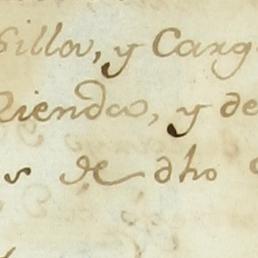 Silla, y Carg
Rienda, y de
s de dho